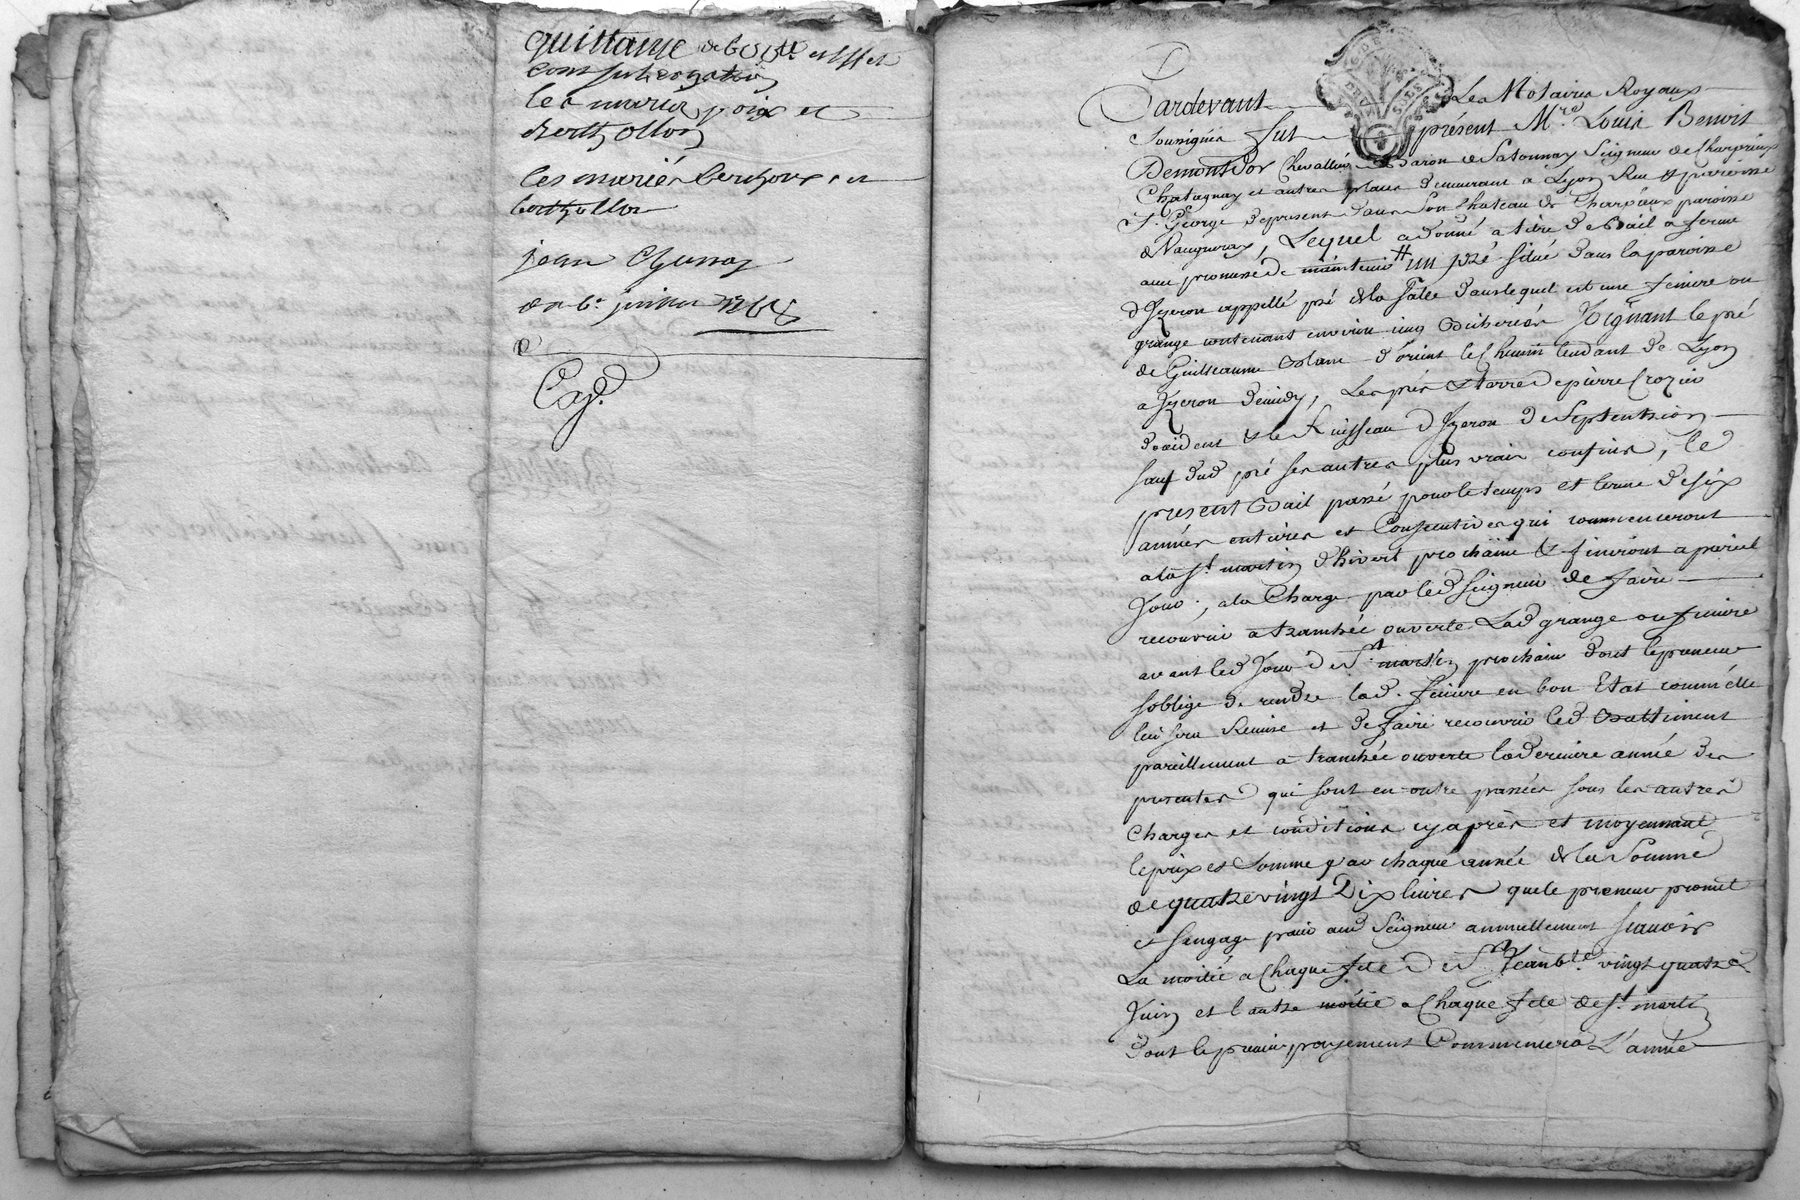 quittance de 601 ## et
con subrogation
les mariés poix et
berthollon
les mariés berchoux et
berthollon
jean Chunaz
du 6e juillet 1768
Exp.d
Pardevant Les Notaires Royaux
soussignés fut présent Mre. Louis Benoit
Demontdor Chevallier Baron de Satonnay Seigneur de Charpieux
Chatagnay et autres places demeurant a Lyon Rue & paroisse
St. George depresent dans son Chateau de paroisse
de Vaugneray, Lequel a donné a titre de Bail a ferme
aux promesse de maintenir # un pré situé dans la paroisse
d'Izeron appellé pré de la Salle dans lequel est une feniere ou
grange contenant environ cinq Bicherées Joignant le pré
de Guilleaume Blanc d'orient le Chemin tendant de Lyon
a Izeron de midy, Les prés & terre de pierre Crozier
d'occident & le Ruisseau d'Izeron de Septentrion
sauf dud pré ses autres plus vrais confins, le
present Bail passé pour le temps et terme de six
années entieres et Consecutives qui commenceront
a la St. martin d'hivert prochaine & finiront a pareil
Jour; a la Charge par led Seigneur de faire
recouvrir a tranchée ouverte Lad grange ou feniere
avant led Jour de St. martin prochain dont le preneur
s'oblige de rendre lad. feniere en bon Etat comm'elle
lui sera Remise et de faire recouvrir led Battiment
pareillement a tranchée ouverte la derniere année des
presentes qui sont en outre passées sous les autres
Charges et conditions cy après et moyennant
le prix et Somme par chaque année de la Somme
de quatre vingt Dix livres que le preneur promet
et s'engage païer aud Seigneur annuellement sçavoir
La moitié a Chaque fete de St. Jean bte. vingt quatre
Juin et l'autre moitié a Chaque fete de St. martin
dont le premier payement Commencera L'année